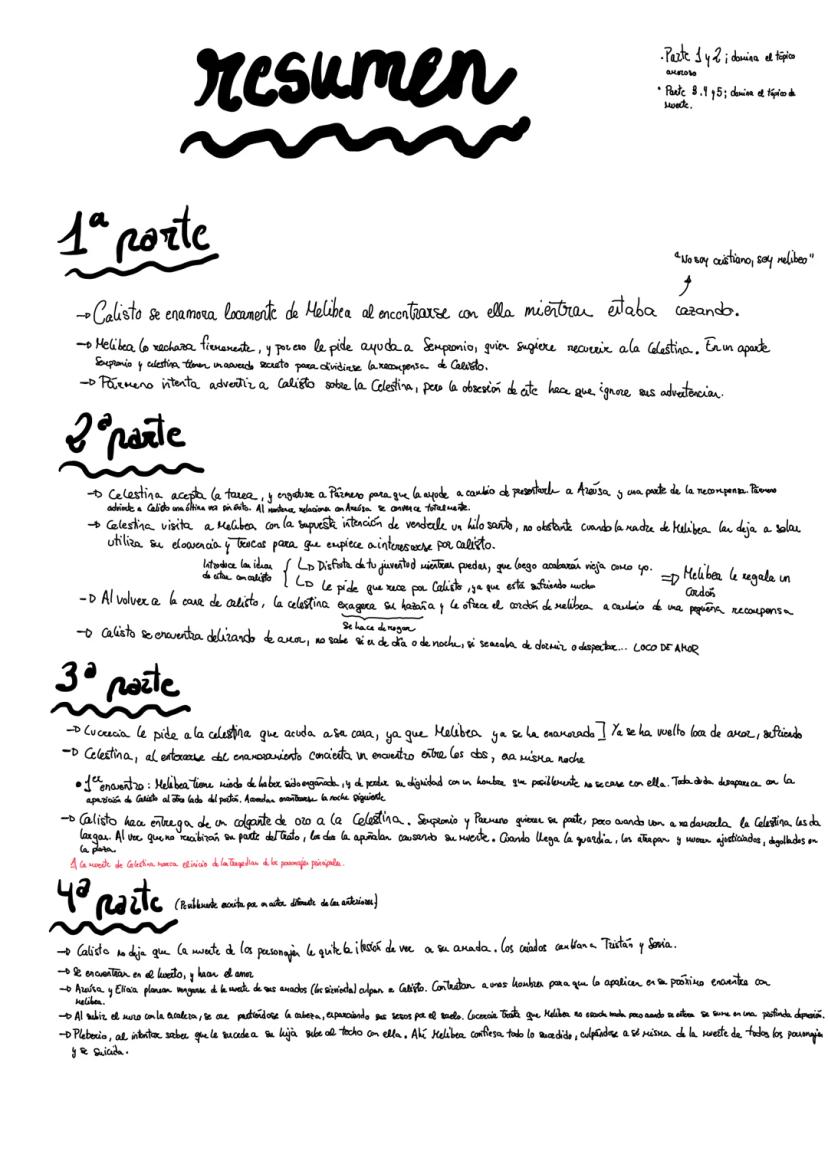 resumen
· Parte 1 y 2; domina el tópico
amoroso
· Parte 3, 4 y 5; domina el tópico de
muerte.
1ª parte
"No soy cristiano, soy melibeo"
→ Calisto se enamora locamente de Melibea al encontrarse con ella mientras estaba cazando.
→ Melibea lo rechaza firmemente, y por eso le pide ayuda a Sempronio, quien sugiere recurrir a la Celestina. En un aparte
Sempronio y celestina tienen un acuerdo secreto para dividirse la recompensa de Calisto.
→ Pármeno intenta advertir a Calisto sobre la Celestina, pero la obsesión de este hace que ignore sus advertencias.
2ª parte
→ Celestina acepta la tarea, y engatusa a Pármeno para que la ayude a cambio de presentarle a Areúsa y una parte de la recompensa. Pármeno
advierte a Calisto una última vez sin éxito. Al mantener relaciones con Areúsa se convence totalmente.
→ Celestina visita a Melibea con la supuesta intención de venderle un hilo santo, no obstante cuando la madre de Melibea las deja a solas
utiliza su elocuencia y trucos para que empiece a interesarse por calisto.
Introduce las ideas
de estar con calisto
↳ Disfruta de tu juventud mientras puedas, que luego acabarás vieja como yo.
↳ Le pide que rece por Calisto, ya que está sufriendo mucho
⇒ Melibea le regala un
Cordón
→ Al volver a la casa de calisto, la celestina exagera su hazaña y le ofrece el cordón de melibea a cambio de una pequeña recompensa
Se hace de rogar
→ Calisto se encuentra delirando de amor, no sabe si es de día o de noche, si se acaba de dormir o despertar... LOCO DE AMOR
3ª parte
→ Lucrecia le pide a la celestina que acuda a su casa, ya que Melibea ya se ha enamorado] Ya se ha vuelto loca de amor, sufriendo
→ Celestina, al enterarse del enamoramiento concierta un encuentro entre los dos, esa misma noche
• 1er encuentro: Melibea tiene miedo de haber sido engañada, y de perder su dignidad con un hombre que posiblemente no se case con ella. Toda duda desaparece con la
aparición de Calisto al otro lado del portón. Acuerdan encontrarse la noche siguiente
→ Calisto hace entrega de un colgante de oro a la Celestina. Sempronio y Parmeno quieren su parte, pero cuando van a reclamarla la Celestina les da
largas. Al ver que no recibirán su parte del trato, los dos la apuñalan causando su muerte. Cuando llega la guardia, los atrapan y mueren ajusticiados, degollados en
la plaza.
La muerte de Celestina marca el inicio de las Tragedias de los personajes principales.
4ª parte (Posiblemente escrita por un autor diferente de las anteriores)
→ Calisto no deja que la muerte de los personajes le quite la ilusión de ver a su amada. Los criados cambian a Tristán y Sosia.
→ Se encuentran en el huerto, y hacen el amor
→ Areúsa y Elicia planean vengarse de la muerte de sus amados culpan a Calisto. Contratan a unos hombres para que lo apalicen en su próximo encuentro con
melibea.
→ Al subir el muro con la escalera, se cae partiéndose la cabeza, esparciendo sus sesos por el suelo. Lucrecia Trata que Melibea no escuche nada pero cuando se entera se sume en una profunda depresión.
→ Pleberio, al intentar saber que le sucede a su hija sube al techo con ella. Ahí Melibea confiesa todo lo sucedido, culpándose a sí misma de la muerte de todos los personajes
y se suicida.